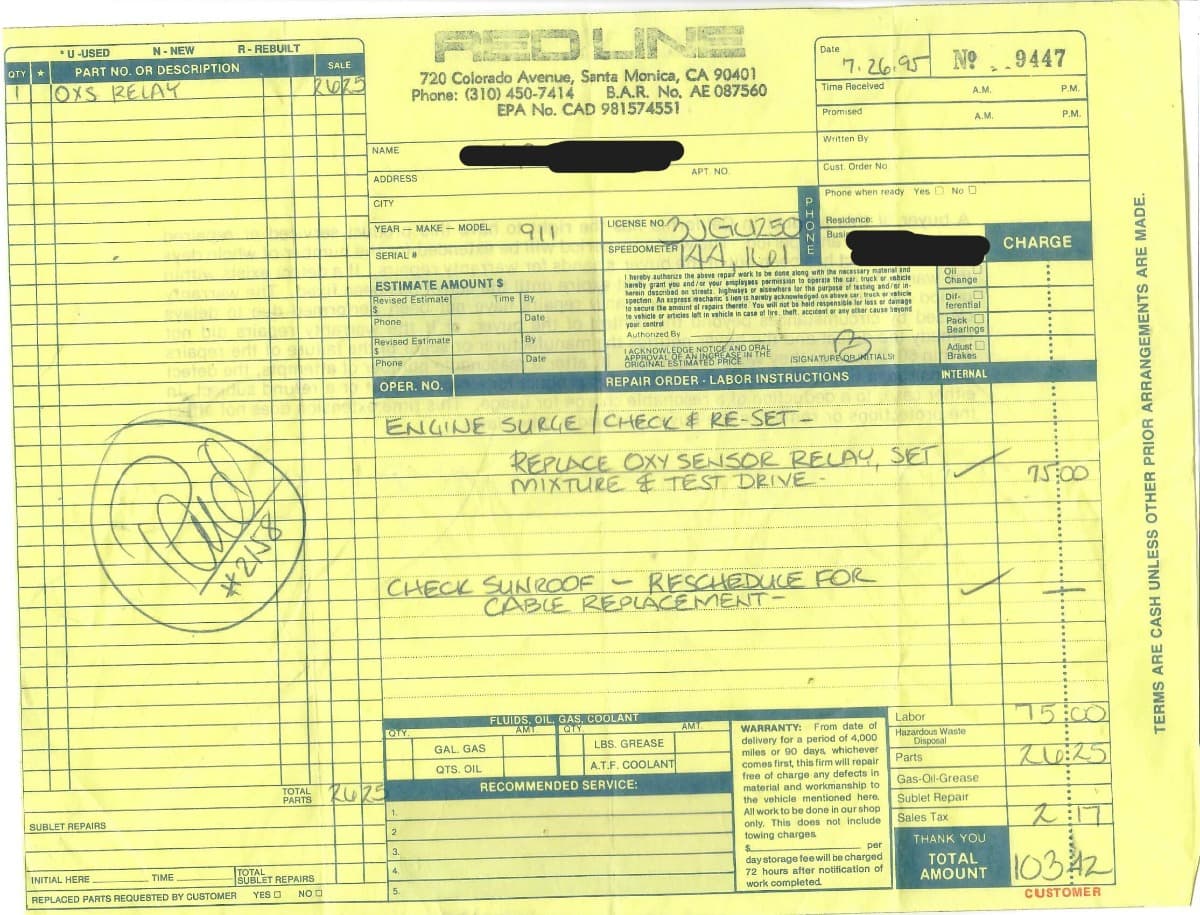 * U - USED N - NEW R - REBUILT
QTY * PART NO. OR DESCRIPTION SALE
1 OXS RELAY 26 25
TOTAL PARTS 26 25
SUBLET REPAIRS
INITIAL HERE TIME TOTAL SUBLET REPAIRS
REPLACED PARTS REQUESTED BY CUSTOMER YES NO
Paid
*2158
RED LINE
720 Colorado Avenue, Santa Monica, CA 90401
Phone: (310) 450-7414 B.A.R. No. AE 087560
EPA No. CAD 981574551
Date 7.26.95 Nº 9447
Time Received A.M. P.M.
Promised A.M. P.M.
Written By
Cust. Order No
Phone when ready Yes No
PHONE
Residence:
Busi
NAME
ADDRESS APT. NO.
CITY
YEAR — MAKE — MODEL 911 LICENSE NO. 3JGU250
SERIAL # SPEEDOMETER 144,161
ESTIMATE AMOUNT $
Revised Estimate Time By
$
Phone Date
Revised Estimate By
$
Phone Date
I hereby authorize the above repair work to be done along with the necessary material and
hereby grant you and/or your employees permission to operate the car, truck or vehicle
herein described on streets, highways or elsewhere for the purpose of testing and/or in-
spection. An express mechanic's lien is hereby acknowledged on above car, truck or vehicle
to secure the amount of repairs thereto. You will not be held responsible for loss or damage
to vehicle or articles left in vehicle in case of fire, theft, accident or any other cause beyond
your control
Authorized By
I ACKNOWLEDGE NOTICE AND ORAL
APPROVAL OF AN INCREASE IN THE
ORIGINAL ESTIMATED PRICE.
(SIGNATURE OR INITIALS)
CHARGE
Oil Change
Dif-ferential
Pack Bearings
Adjust Brakes
INTERNAL
OPER. NO. REPAIR ORDER - LABOR INSTRUCTIONS
ENGINE SURGE / CHECK & RE-SET —
REPLACE OXY SENSOR RELAY, SET
MIXTURE & TEST DRIVE - 75.00
CHECK SUNROOF — RESCHEDULE FOR
CABLE REPLACEMENT —
FLUIDS, OIL, GAS, COOLANT
QTY. AMT. QTY. AMT.
GAL. GAS LBS. GREASE
QTS. OIL A.T.F. COOLANT
RECOMMENDED SERVICE:
1.
2
3.
4.
5.
WARRANTY: From date of
delivery for a period of 4,000
miles or 90 days, whichever
comes first, this firm will repair
free of charge any defects in
material and workmanship to
the vehicle mentioned here.
All work to be done in our shop
only. This does not include
towing charges.
$ per
day storage fee will be charged
72 hours after notification of
work completed.
Labor 75:00
Hazardous Waste Disposal
Parts 26:25
Gas-Oil-Grease
Sublet Repair
Sales Tax 2 17
THANK YOU
TOTAL AMOUNT 103.42
CUSTOMER
TERMS ARE CASH UNLESS OTHER PRIOR ARRANGEMENTS ARE MADE.